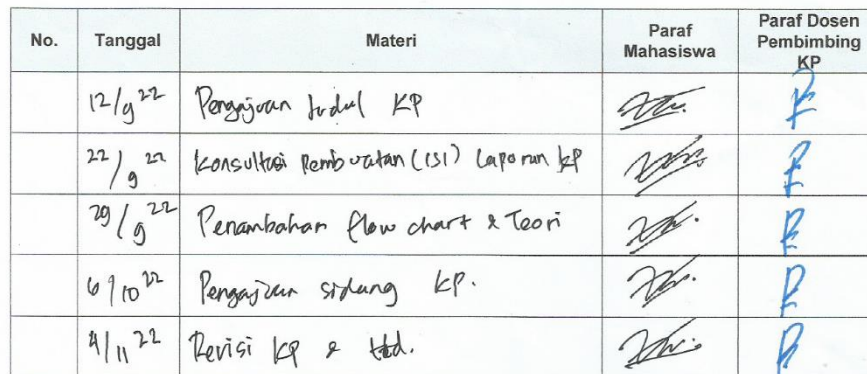 No. Tanggal Materi Paraf Mahasiswa Paraf Dosen Pembimbing KP
12/9 22 Pengajuan Judul KP
22/9 22 Konsultasi Pembuatan (isi) Laporan KP
29/9 22 Penambahan flow chart & Teori
6/10 22 Pengajuan sidang KP.
4/11 22 Revisi KP & ttd.